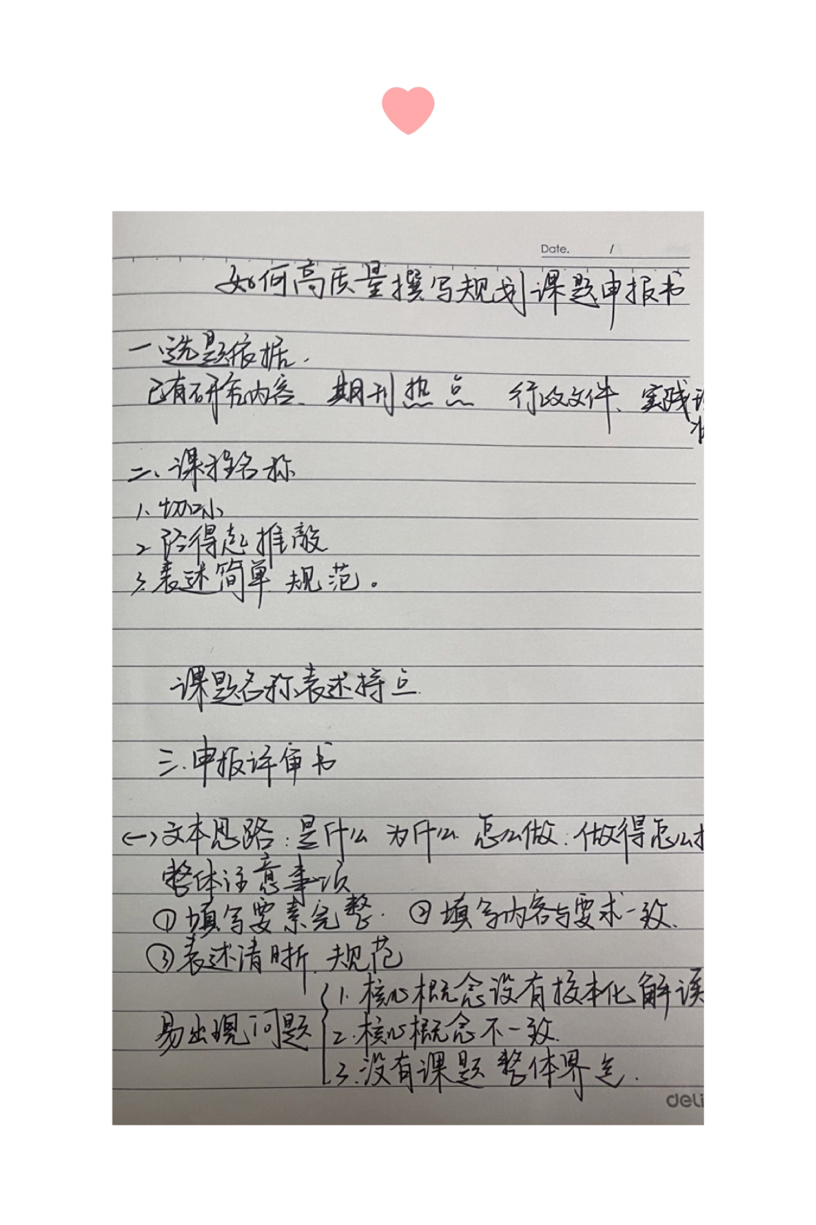 Date. /
如何高质量撰写规划课题申报书
一.选题依据.
已有研究内容、期刊热点 行政文件、实践
二、课程名称
1、切小
2 经得起推敲
3.表述简单 规范。
课题名称表述特点
三.申报评审书
(一)文本思路:是什么 为什么 怎么做:做得怎么
整体注意事项
①填写要素完整. ②填写内容与要求一致.
③表述清晰.规范
易出现问题
1.核心概念没有校本化解读
2.核心概念不一致.
3.没有课题整体界定.
deli